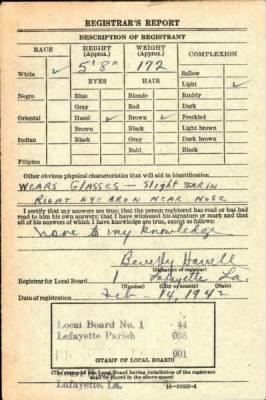 REGISTRAR'S REPORT
DESCRIPTION OF REGISTRANT
RACE HEIGHT (Approx.) WEIGHT (Approx.) COMPLEXION
White ✓ 5' 8" 172 Sallow
EYES HAIR Light ✓
Negro Blue Blonde Ruddy
Gray Red Dark
Oriental Hazel ✓ Brown ✓ Freckled
Brown Black Light brown
Indian Black Gray Dark brown
Bald Black
Filipino
Other obvious physical characteristics that will aid in identification
WEARS GLASSES — Slight SCAR IN
RIGHT EYE BROW NEAR NOSE
I certify that my answers are true; that the person registered has read or has had
read to him his own answers; that I have witnessed his signature or mark and that
all of his answers of which I have knowledge are true, except as follows:
none to my knowledge
Beverly Harrell
Registrar for Local Board 1 Lafayette La.
(Number) (City or county) (State)
Date of registration Feb 14, 1942
Local Board No. 1 44
Lafayette Parish 055
001
(STAMP OF LOCAL BOARD)
Lafayette, La.
(The stamp of the Local Board having jurisdiction of the registrant
shall be placed in the above space)